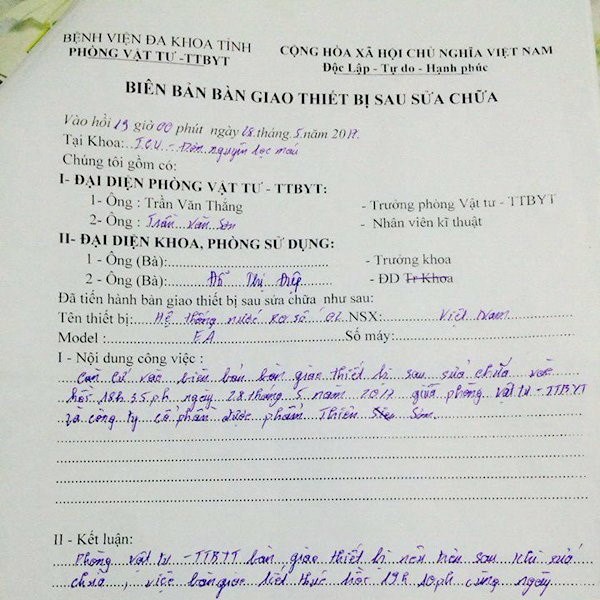 BỆNH VIỆN ĐA KHOA TỈNH
PHÒNG VẬT TƯ -TTBYT
CỘNG HÒA XÃ HỘI CHỦ NGHĨA VIỆT NAM
Độc Lập - Tự do - Hạnh phúc
BIÊN BẢN BÀN GIAO THIẾT BỊ SAU SỬA CHỮA
Vào hồi 19 giờ 00 phút ngày 28 tháng 5 năm 2017.
Tại Khoa: I.C.U - Đơn nguyên lọc máu
Chúng tôi gồm có:
I- ĐẠI DIỆN PHÒNG VẬT TƯ - TTBYT:
1- Ông : Trần Văn Thắng - Trưởng phòng Vật tư - TTBYT
2- Ông : Trần Văn Sơn - Nhân viên kĩ thuật
II- ĐẠI DIỆN KHOA, PHÒNG SỬ DỤNG:
1 - Ông (Bà): - Trưởng khoa
2 - Ông (Bà): Đỗ Thị Điệp - ĐD Tr Khoa
Đã tiến hành bàn giao thiết bị sau sửa chữa như sau:
Tên thiết bị: Hệ thống nước RO số 02 NSX: Việt Nam
Model : EA Số máy:
I - Nội dung công việc :
Căn cứ vào biên bản bàn giao thiết bị sau sửa chữa vào
hồi 18h 35ph ngày 28 tháng 5 năm 2017 giữa phòng vật tư - TTBYT
và công ty cổ phần dược phẩm Thiên Sơn.
II - Kết luận:
Phòng vật tư - TTBYT bàn giao thiết bị nêu trên sau khi sửa
chữa, việc bàn giao kết thúc hồi 19h 10ph cùng ngày